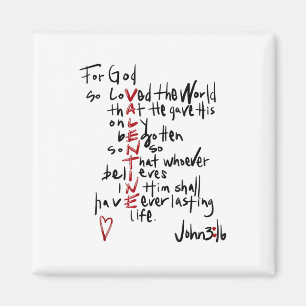 For God
so loVed the World
thAt He gave His
onLy
bEgotten
soN so
That whoever
belIeves
iN Him shall
havE everlasting
life.
John 3:16